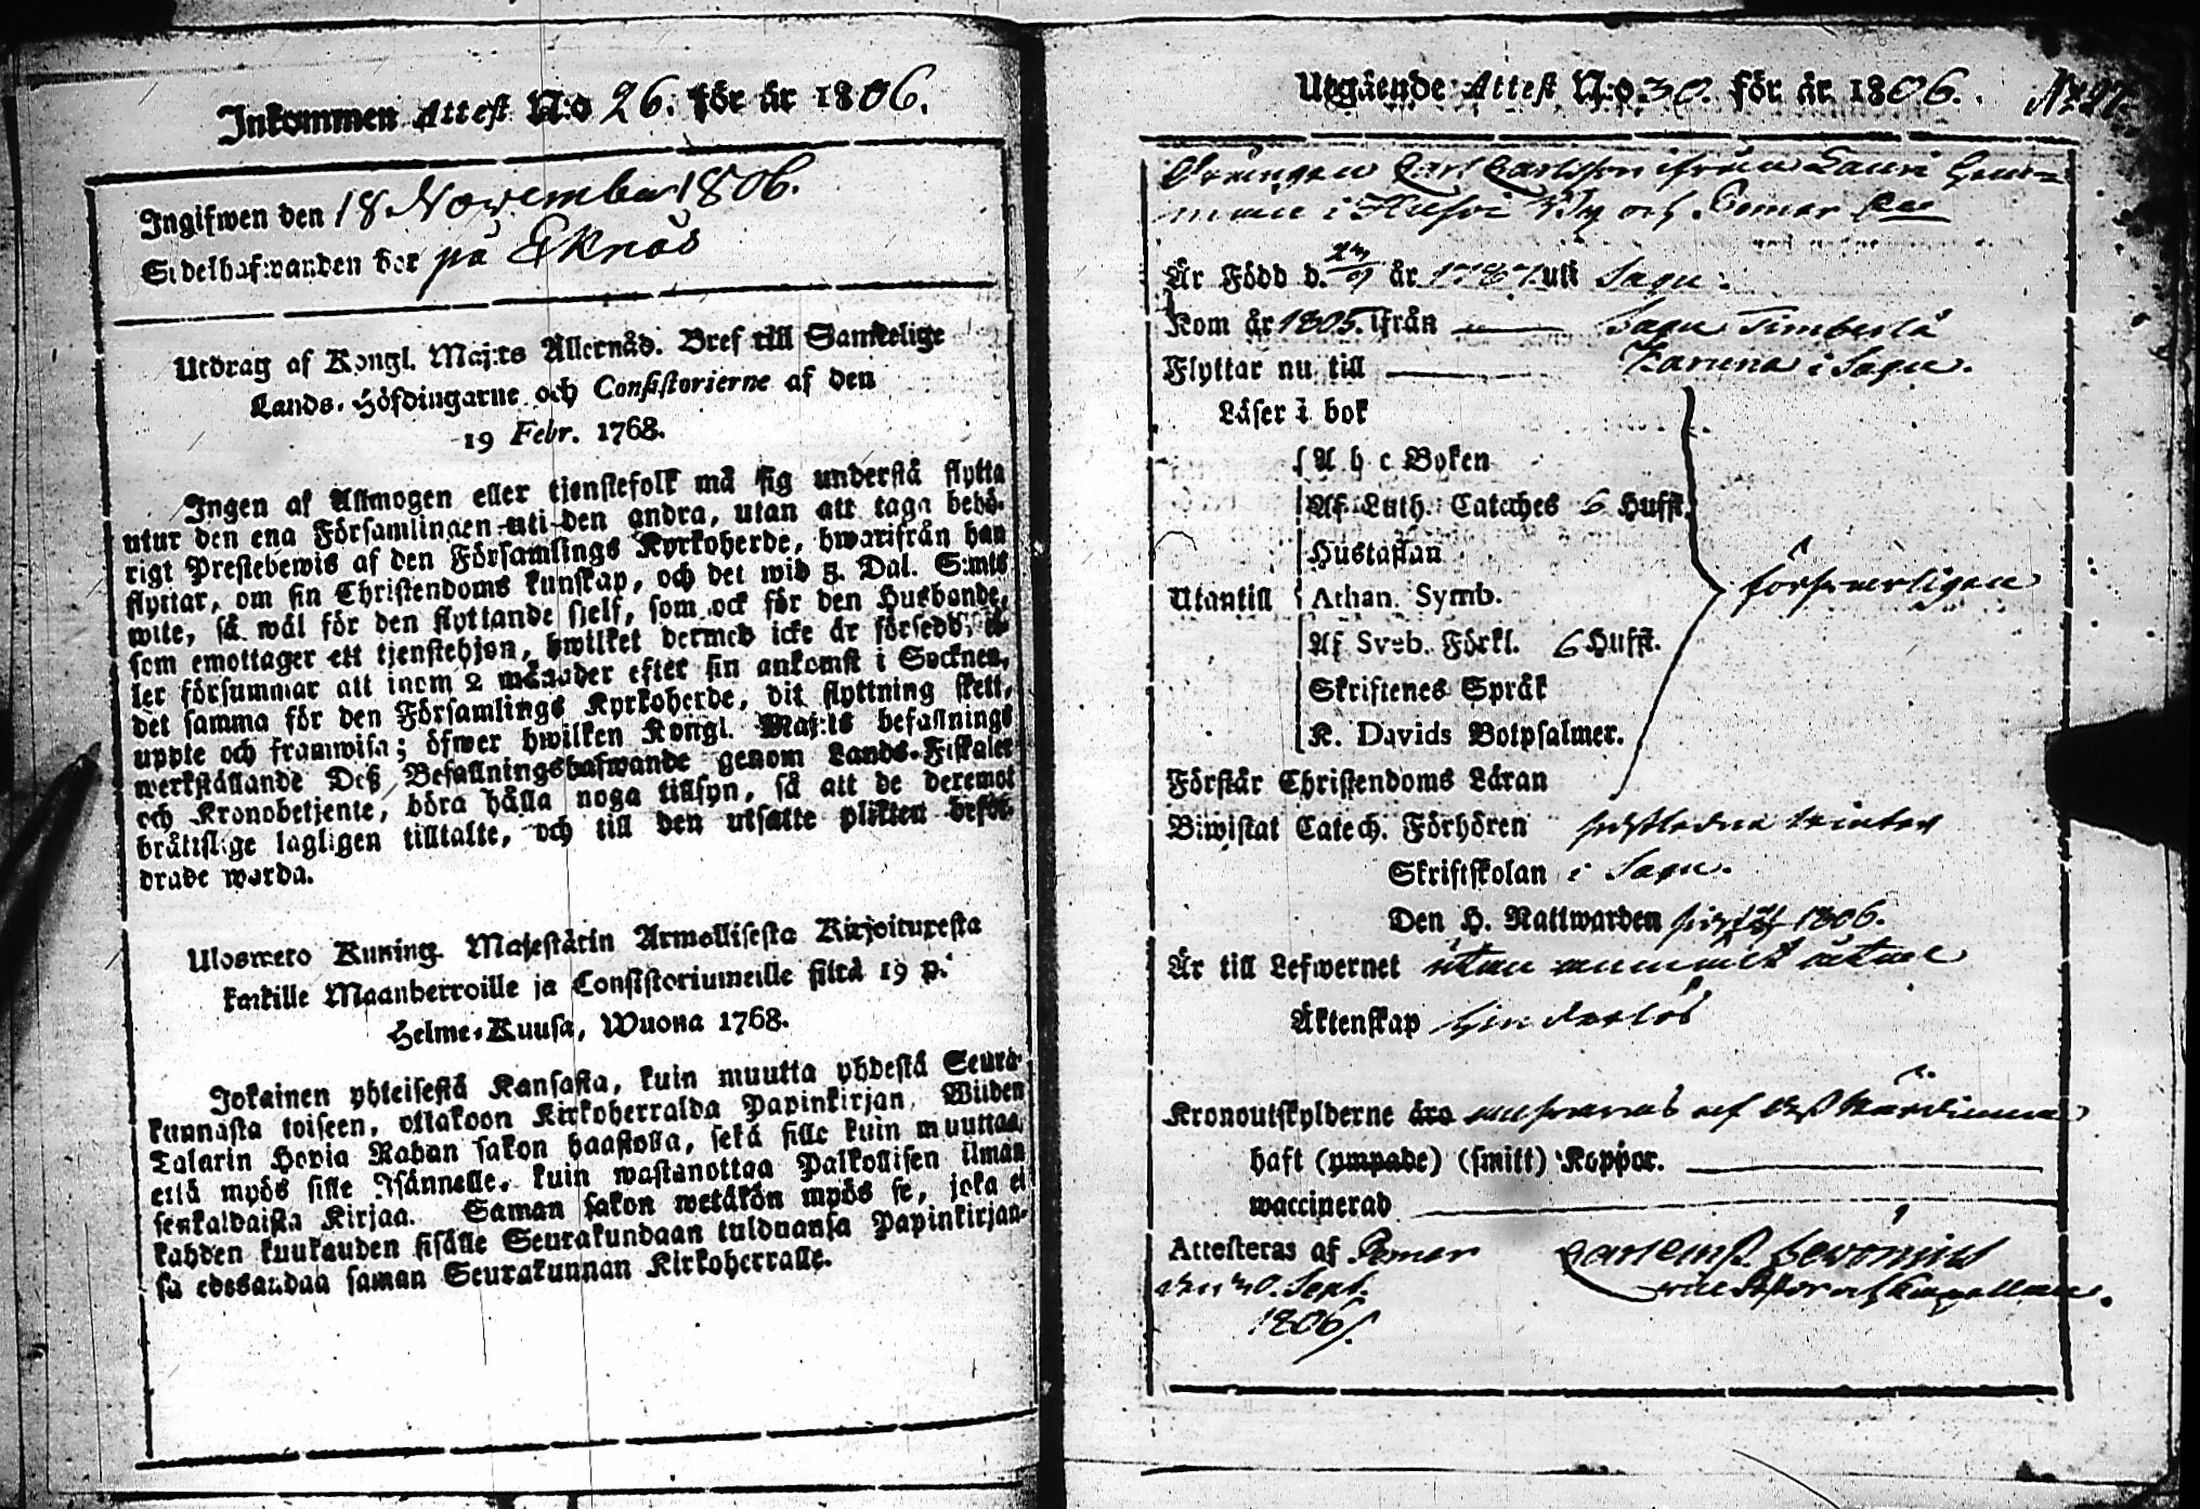 Inkommen Attest N:o 26. för år 1806.
Ingifwen den 18 November 1806.
Sedelhafwanden bor på Eknäs
Utdrag af Kongl. Maj:ts Allernåd. Bref till Samtelige
Lands-Höfdingarne och Consistorierne af den
19 Febr. 1768.
Ingen af Allmogen eller tjenstefolk må sig understå flytta
utur den ena Församlingen uti den andra, utan att taga behö-
rigt Prestebewis af den Församlings Kyrkoherde, hwarifrån han
flyttar, om sin Christendoms kunskap, och det wid 3. Dal. S:mts
wite, så wäl för den flyttande sjelf, som ock för den Husbonde,
som emottager ett tjenstehjon, hwilket dermed icke är försedt, el-
ler försummar att inom 2 månader efter sin ankomst i Socknen,
det samma för den Församlings Kyrkoherde, dit flyttning skett,
uppte och framwisa; öfwer hwilken Kongl. Maj:ts befallnings
werkställande Deß Befallningshafwande genom Lands-Fiskaler
och Kronobetjente, böra hålla noga tillsyn, så att de deremot
bråtislige lagligen tilltalte, och till den utsatte plikten befor-
drade warda.
Ulosweto Kuning. Majestätin Armollisesta Kirjoituxesta
kaikille Maanherroille ja Consistoriumeille siltä 19 p.
Helme-Kuusa, Wuona 1768.
Jokainen yhteisestä Kansasta, kuin muutta yhdestä Seura-
kunnasta toiseen, ottakoon Kirkoherralda Papinkirjan, Wiiden
Talarin Hopia Rahan sakon haastolla, sekä sille kuin muuttaa,
että myös sille Isännelle, kuin wastanottaa Palkollisen ilman
senkaldaista Kirjaa. Saman sakon wetäkön myös se, joka ei
kahden kuukauden sisälle Seurakundaan tulduansa Papinkirjaan-
sa edesandaa saman Seurakunnan Kirkoherralle.
Utgående Attest N:o 30. för år 1806.
Drängen Carl Carlsson ifrån Lauri
i By och Pemar
Är Född d. år 1787 uti Sagu.
Kom år 1805. ifrån Sagu Timberlä
Flyttar nu till Karuna i Sagu.
Läser i bok
A b c Boken
Af Luth. Cateches 6 Hufst.
Hustaflan
Utantill Athan. Symb. försvarligen
Af Sveb. Förkl. 6 Hufst.
Skriftenes Språk
K. Davids Botpsalmer.
Förstår Christendoms Läran
Biwistat Catech. Förhören sistledne winter
Skriftskolan i Sagu.
Den H. Nattwarden 1806.
Är till Lefwernet utan
Äktenskap hinderlös
Kronoutskylderne äro ansvaras af deß
haft (ympade) (smitt) Koppor.
waccinerad
Attesteras af Pemar
den 30. Sept.
1806.